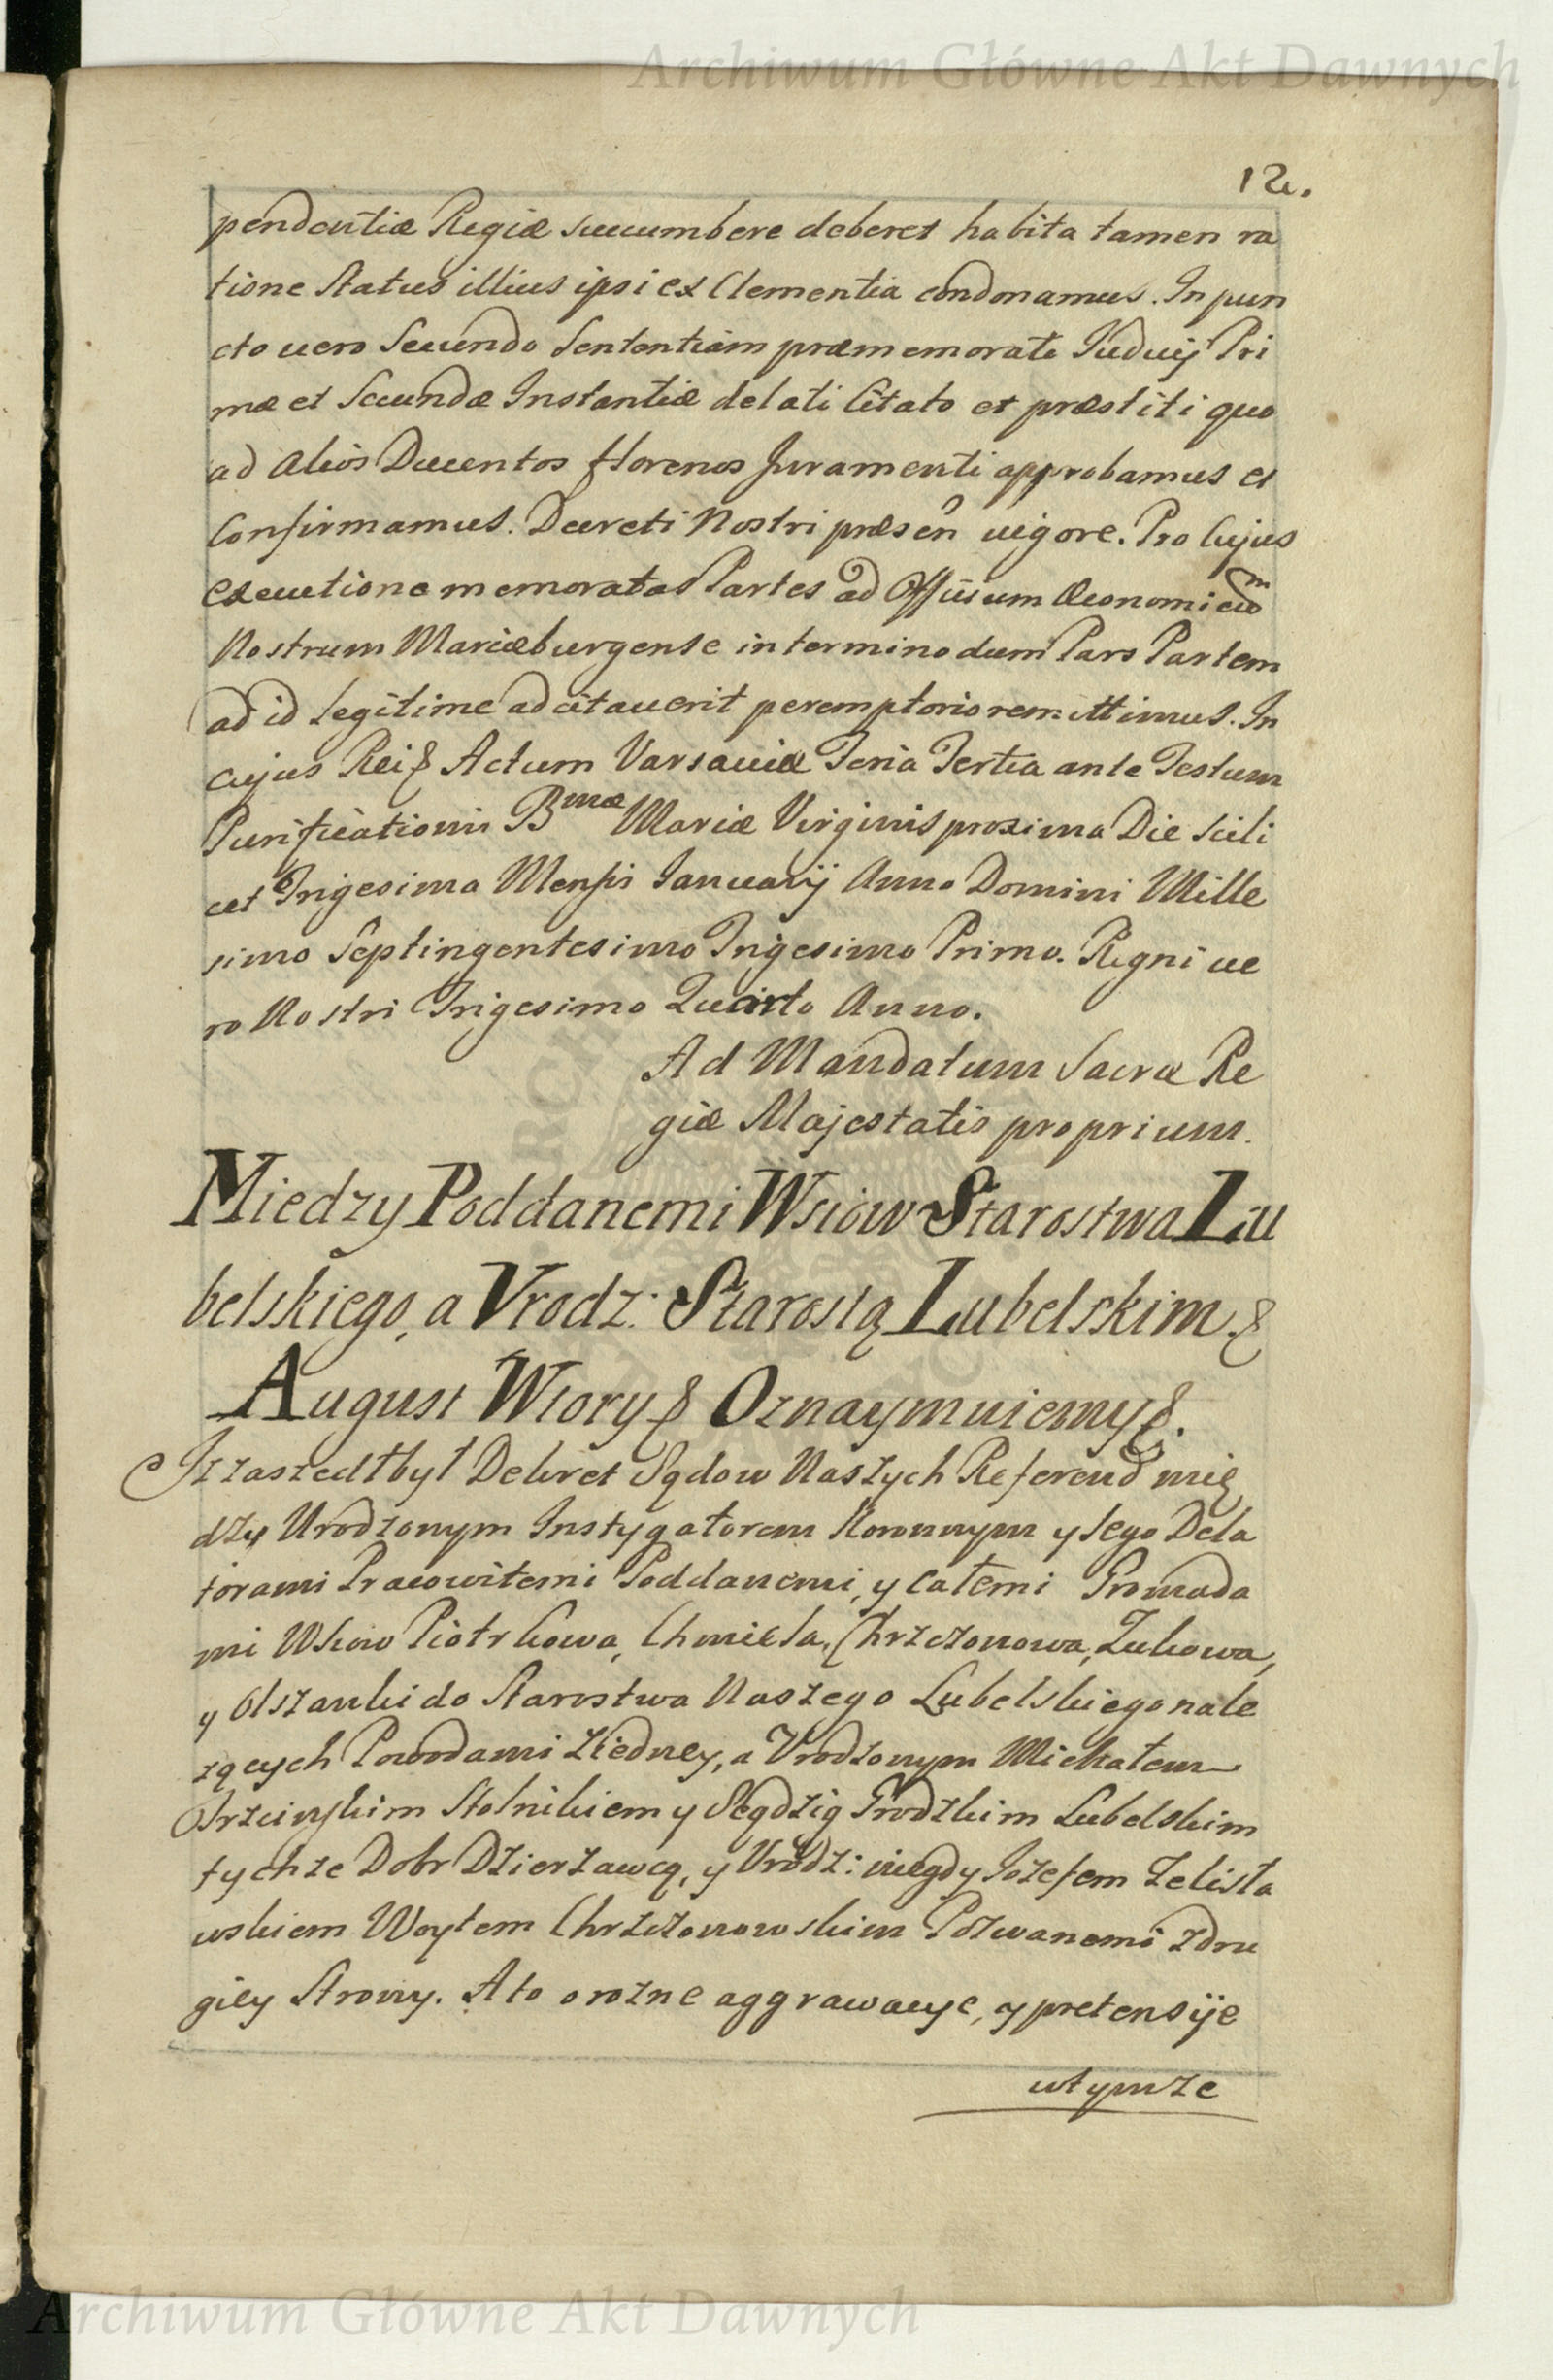 Archiwum Główne Akt Dawnych
12.
pendentiæ Regiæ succumbere deberet habita tamen ra
tione Status illius ipsi ex Clementia condonamus. In pun
cto uero Secundo Sententiam præmemorati Judicij Pri
mæ et Secundæ Instantiæ delati Citato et præstiti quo
ad alios Ducentos florenos Juramenti approbamus et
Confirmamus. Decreti Nostri præsen uigore. Pro Cujus
executione memoratas Partes ad Officium Œconomicum
Nostrum Mariæburgense in termino dum Pars Partem
ad id legitime adcitauerit peremptorio remittimus. In
cujus Rei & Actum Varsauiæ Feria Tertia ante Festum
Purificationis Bmæ Mariæ Virginis proxima Die Scili
cet Trigesima Mensis Januarij Anno Domini Mille
simo Septingentesimo Trigesimo Primo. Regni ue
ro Nostri Trigesimo Quarto Anno.
Ad Mandatum Sacræ Re
giæ Majestatis proprium.
Miedzy Poddanemi Wsiow Starostwa Lu
belskiego, a Vrodz: Starostą Lubelskim &
August Wtory & Oznaymuiemy &.
Iz zaszedł był Dekret Sądow Naszych Referend mię
dzy Urodzonym Instygatorem Koronnym y Jego Dela
torami Pracowitemi Poddanemi, y całemi Gromada
mi Wsiow Piotrkowa, Chmiela, Chrzczonowa, Zukowa,
y Olszanki do Starostwa Naszego Lubelskiego nale
zących Powodami z Iedney, a Vrodzonym Michałem
Strzcinskim Stolnikiem y Sędzią Grodzkim Lubelskim
tychze Dobr Dzierzawcą, y Vrodz: niegdy Jozefem Zelisła
wskiem Woytem Chrzczonowskim Pozwanemi z dru
giey Strony. A to o rozne aggrawacye, y pretensije
wtymze
Archiwum Główne Akt Dawnych